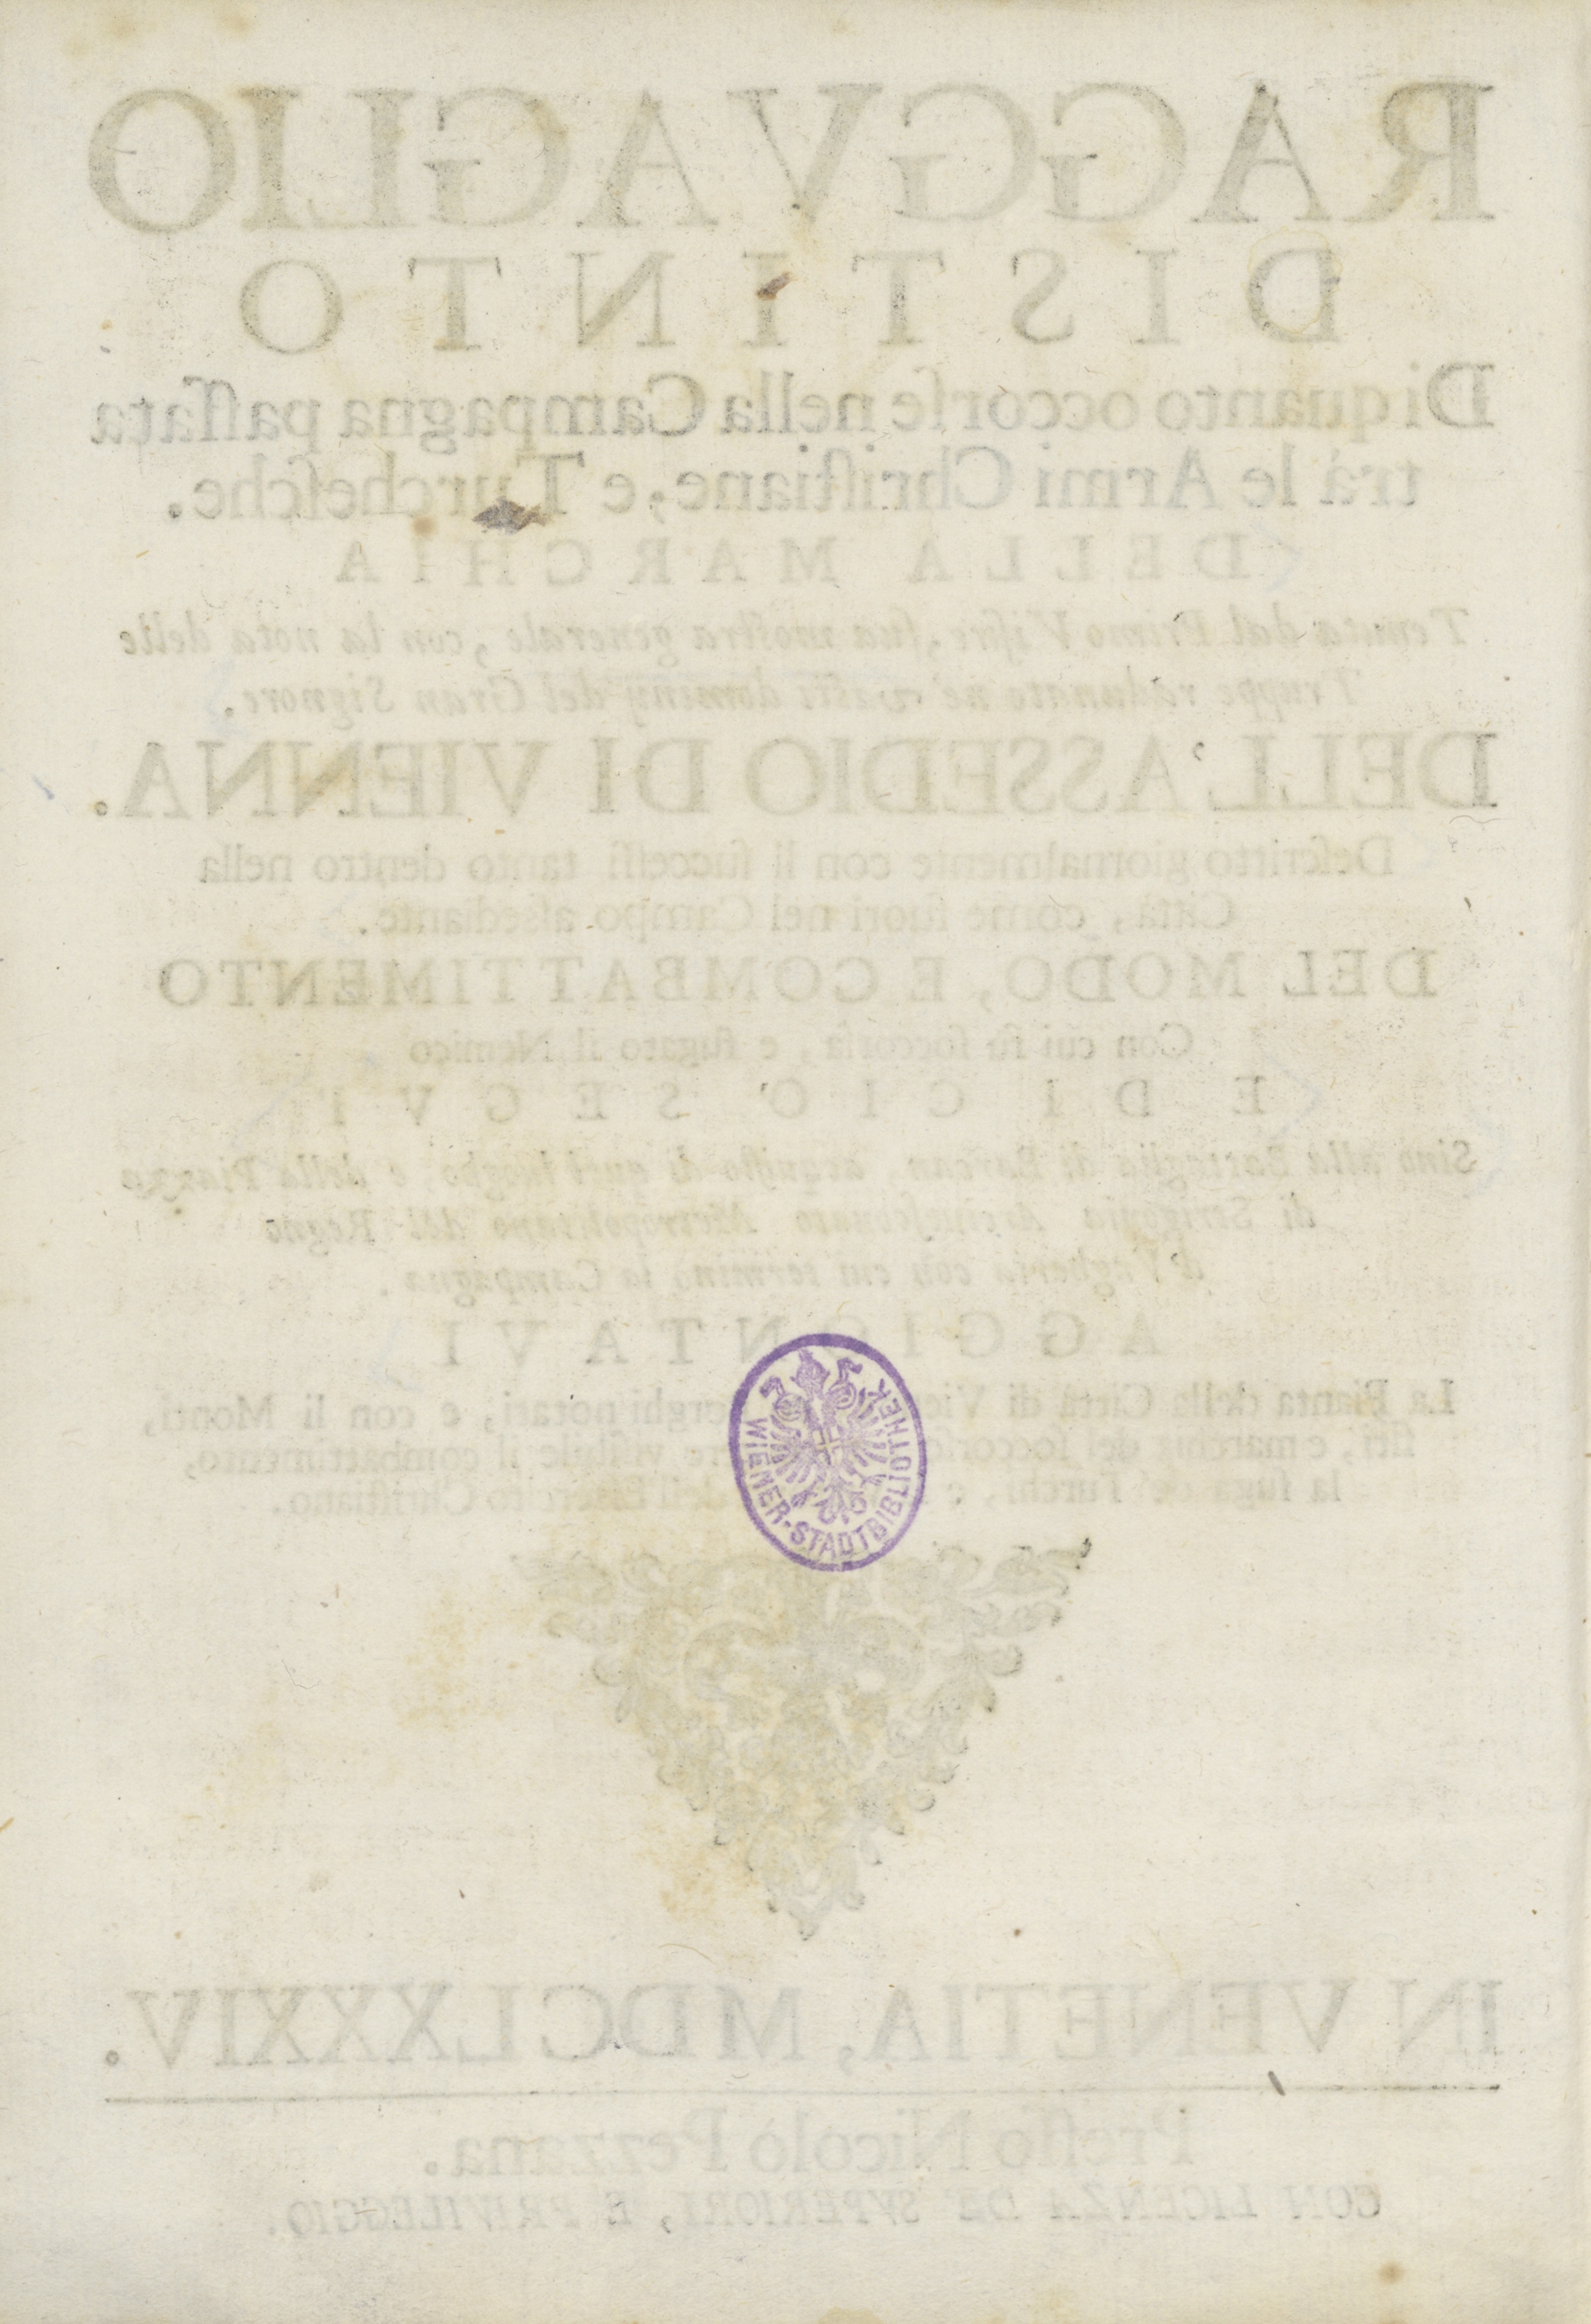 RAGGVAGLIO
DISTINTO
Di quanto occorſe nella Campagna paſſata
trà le Armi Chriſtiane, e Turcheſche.
DELLA MARCHIA
Tenuta dal Primo Viſire, ſua mostra generale, con la nota delle
Truppe radunate ne' vasti dominij del Gran Signore.
DELL'ASSEDIO DI VIENNA.
Deſcritto giornalmente con li ſucceſſi tanto dentro nella
Città, come fuori nel Campo aſsediante.
DEL MODO, E COMBATTIMENTO
Con cui fù ſoccorſa, e fugato il Nemico
E DI CIO' SEGVI
Sino alla Battaglia di Barcan, acquiſto di quel luogho, e della Piazza
di Strigonia Arciueſcouato Metropolitano del Regno
d'Vngheria con cui terminò la Campagna.
AGGIONTAVI
La Pianta della Città di Vienna notati, e con li Monti,
ſiti, e marchia del ſoccorſo viſibile il combattimento,
la fuga de Turchi, e dell'Eſercito Chriſtiano.
WIENER-STADTBIBLIOTHEK
IN VENETIA, MDCLXXXIV.
Preſſo Nicolò Pezzana.
CON LICENZA DE' SVPERIORI, E PRIVILEGGIO.